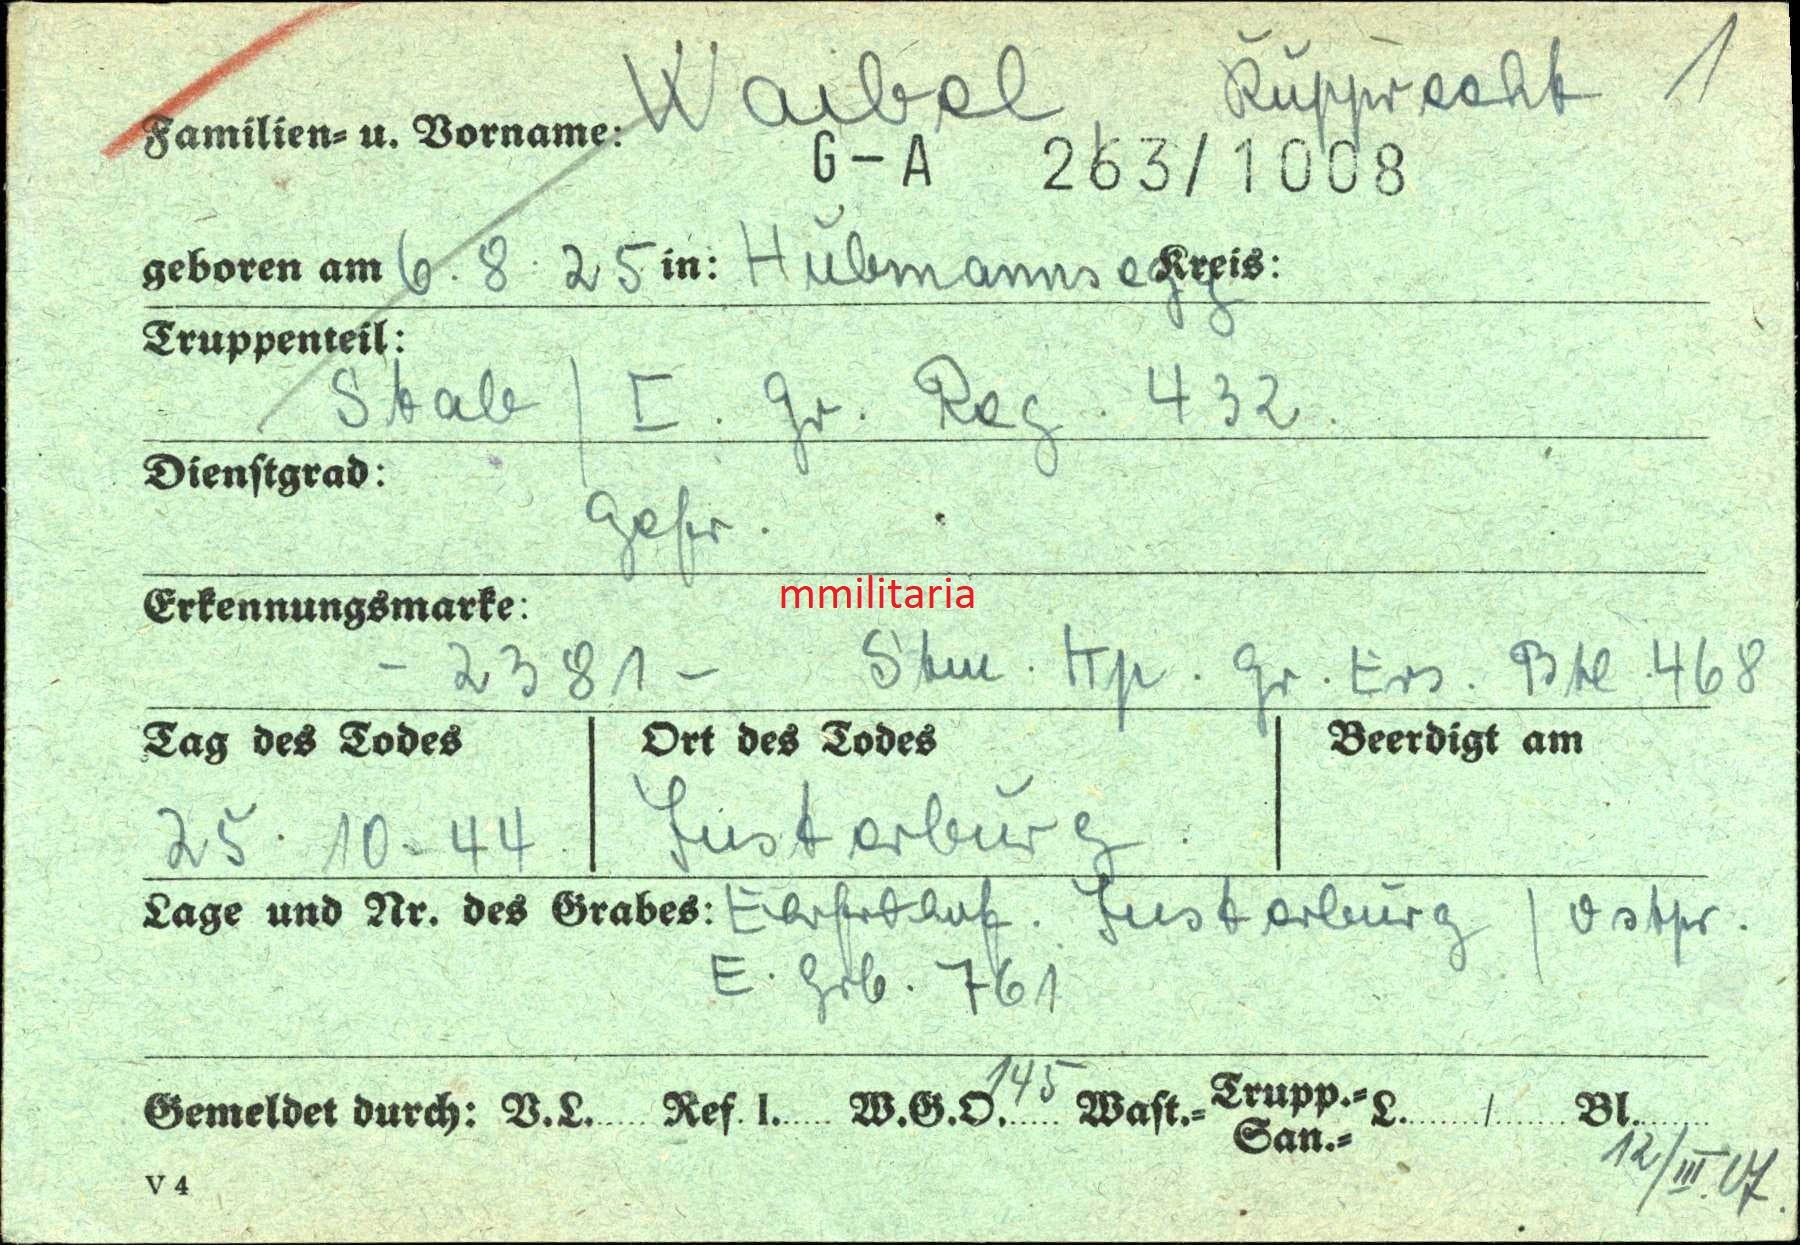 Familien= u. Vorname: Waibel Rupprecht 1
G-A 263/1008
geboren am 6.8.25 in: Hubmannsegg Kreis:
Truppenteil:
Stab / I. Gr. Reg. 432.
Dienstgrad:
Gefr.
mmilitaria
Erkennungsmarke:
- 2381 - Stm. Kp. Gr. Ers. Btl. 468
Tag des Todes Ort des Todes Beerdigt am
25.10.44 Insterburg.
Lage und Nr. des Grabes: Insterburg / Ostpr.
E. Grb. 761
Gemeldet durch: V.L. Ref. I. W.G.O. 145 Wast.= Trupp.= San.= L. / Bl.
12/III.
V 4